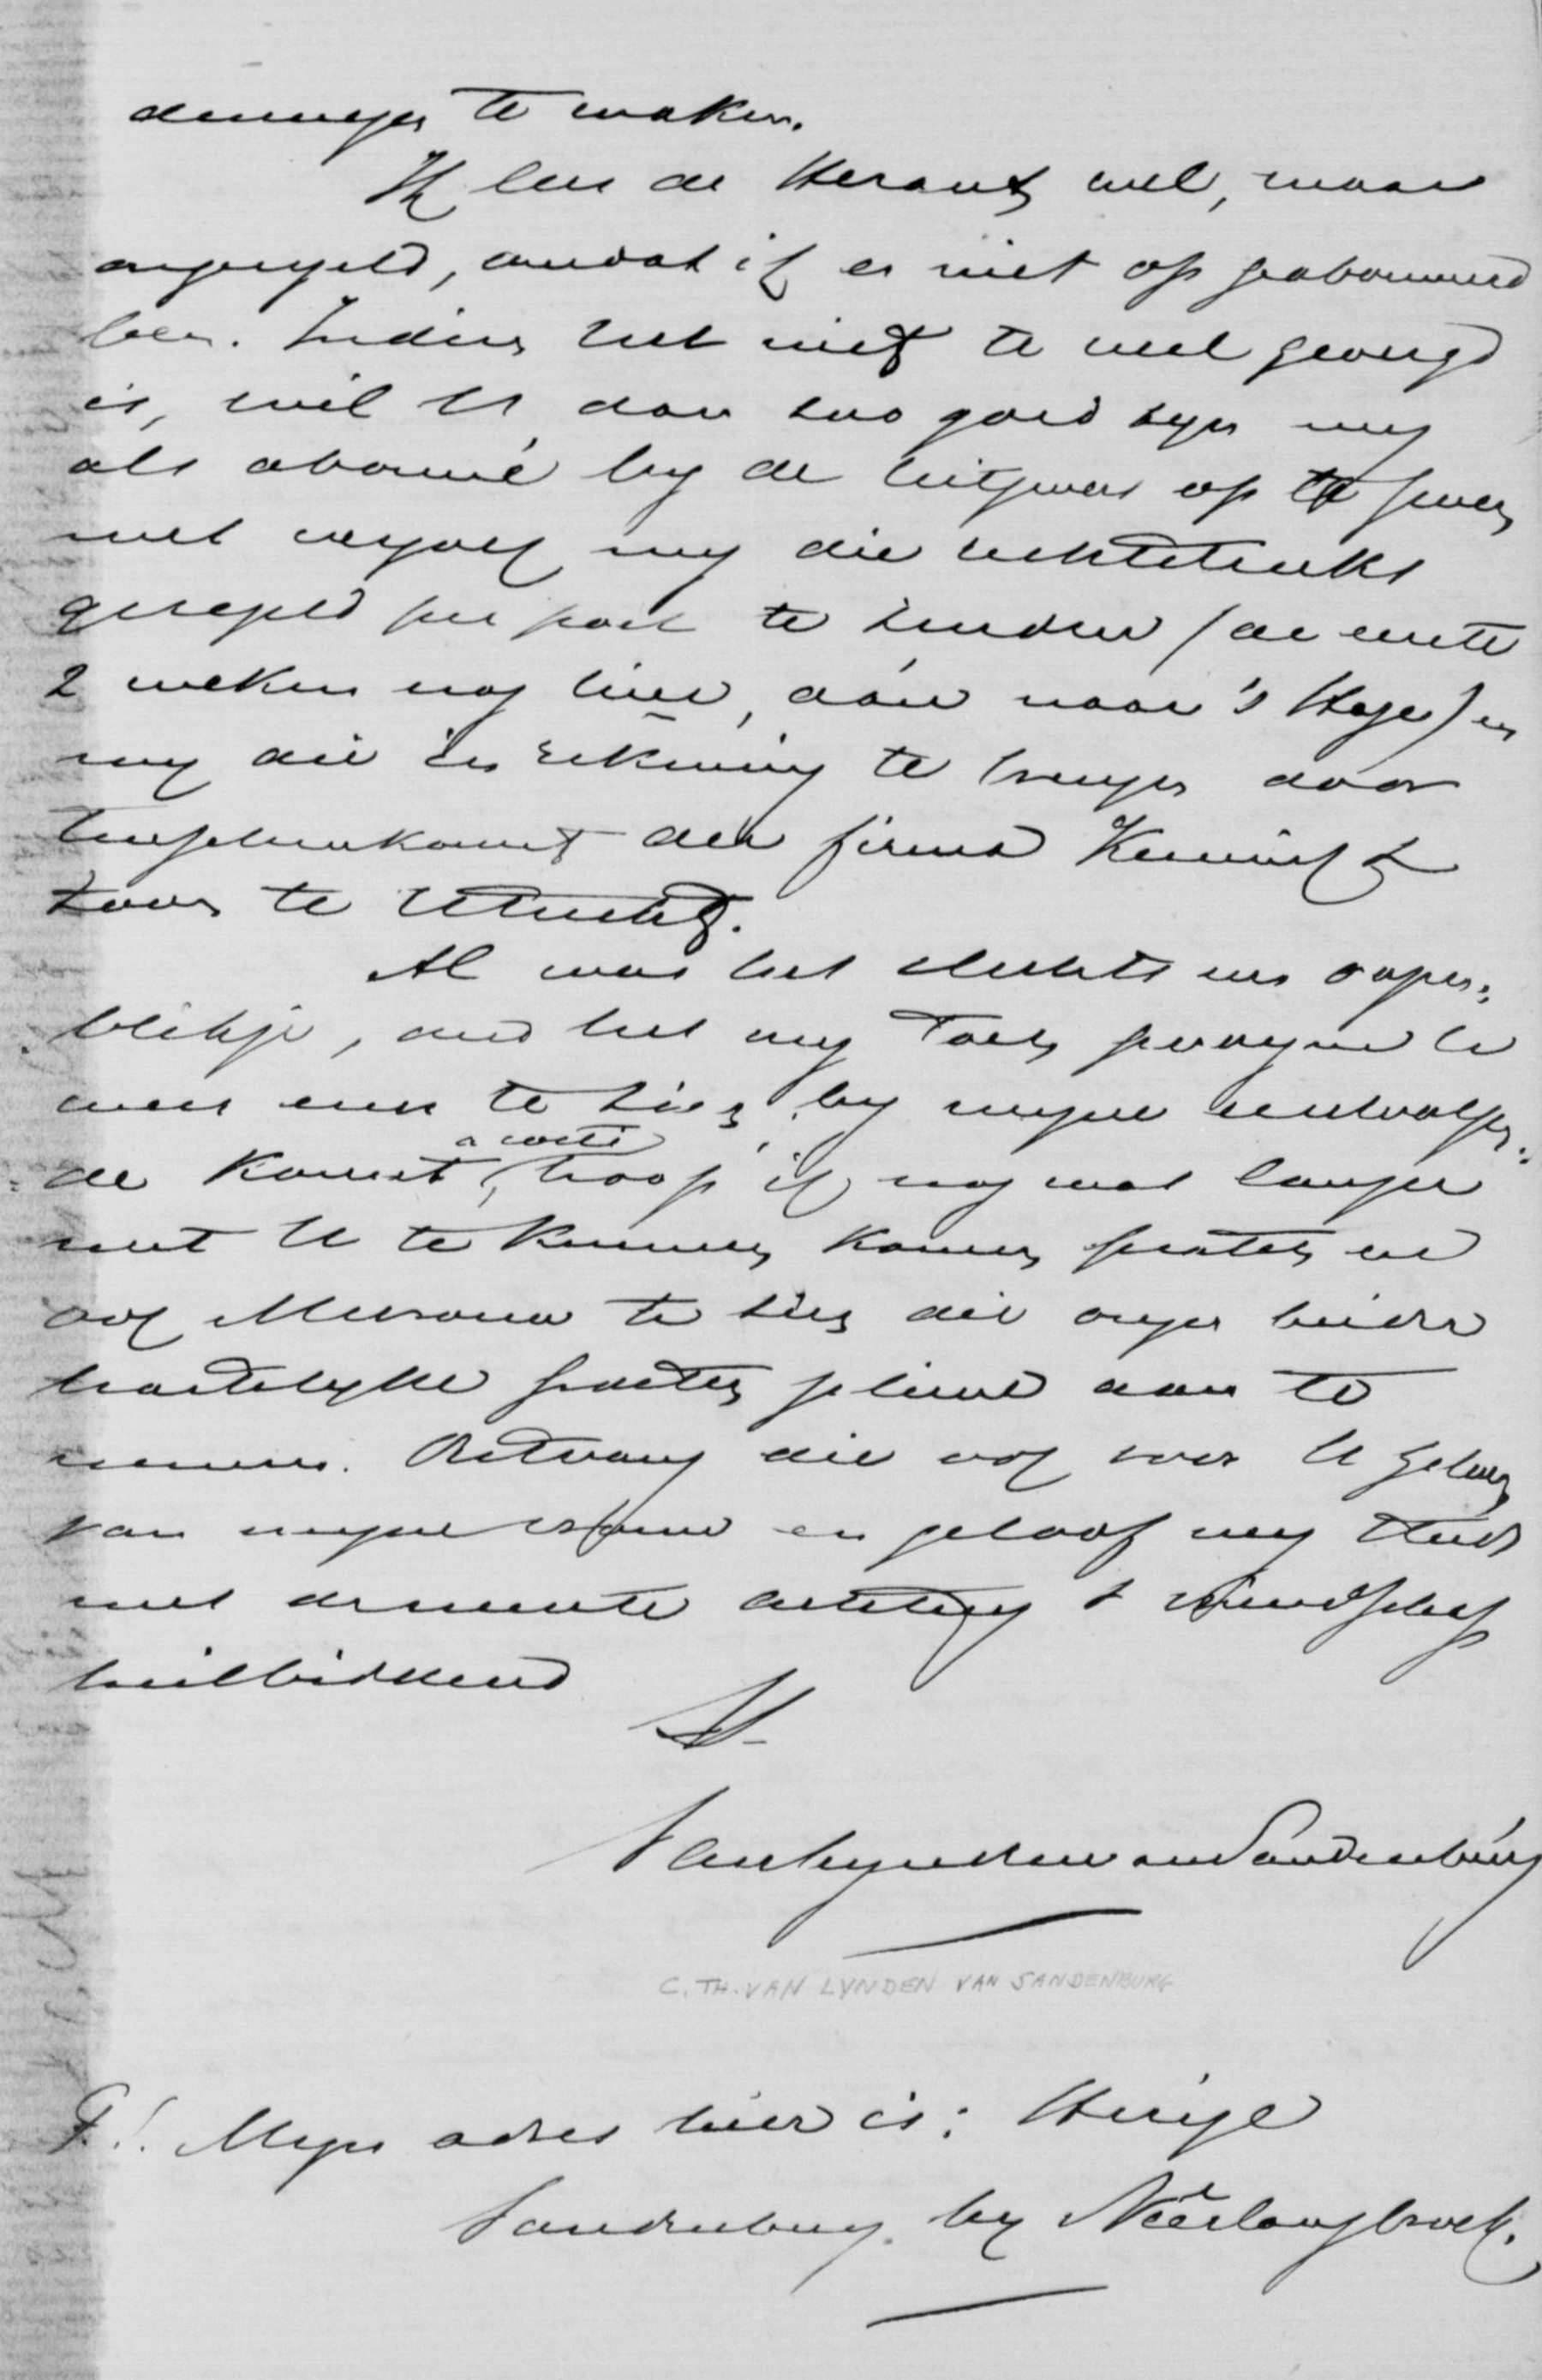 te maken.
Ik lees de Heraut wel, maar
ongeregeld, omdat ik er niet op geabonneerd
ben. Indien het niet te veel gevergd
is, wil U dan zoo goed zyn my
als abonné by de Uitgever op te geven
met verzoek my die rechtstreeks
geregeld per post te zenden (de eerste
2 weken nog hier, dán naar 's Hage) en
my die in rekening te brengen door
tusschenkomst der firma Kemink &
Zoon te Utrecht.
Al was het slechts een oogen-
blikje, deed het my toch genoegen U
weer eens te zien, by myne eerstvolgen-
de komst a costi, hoop ik nog wat langer
met U te kunnen komen praten en
ook Mevrouw te zien die onzer beider
hartelyke groeten gelieve aan te
nemen. Ontvang die ook voor U zelven
van myne vrouw en geloof my steeds
met de meeste achting & vriendschap
heilbiddend
VanLyndenvanSandenburg
C. TH. VAN LYNDEN VAN SANDENBURG
P.S. Myn adres hier is: Huize
Sandenburg by Neêrlangbroek.